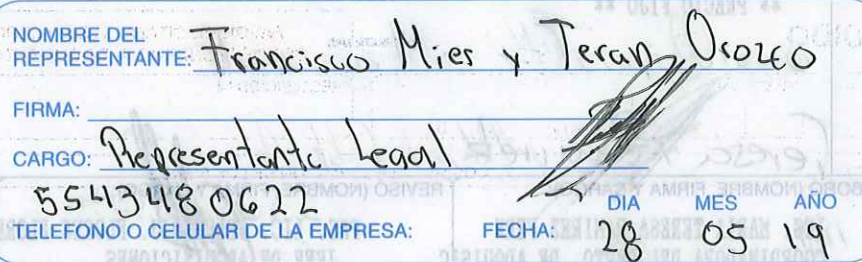 NOMBRE DEL
REPRESENTANTE: Francisco Mier y Teran Orozco
FIRMA:
CARGO: Representante Legal
5543480622
TELEFONO O CELULAR DE LA EMPRESA:
FECHA: DIA MES AÑO
28 05 19